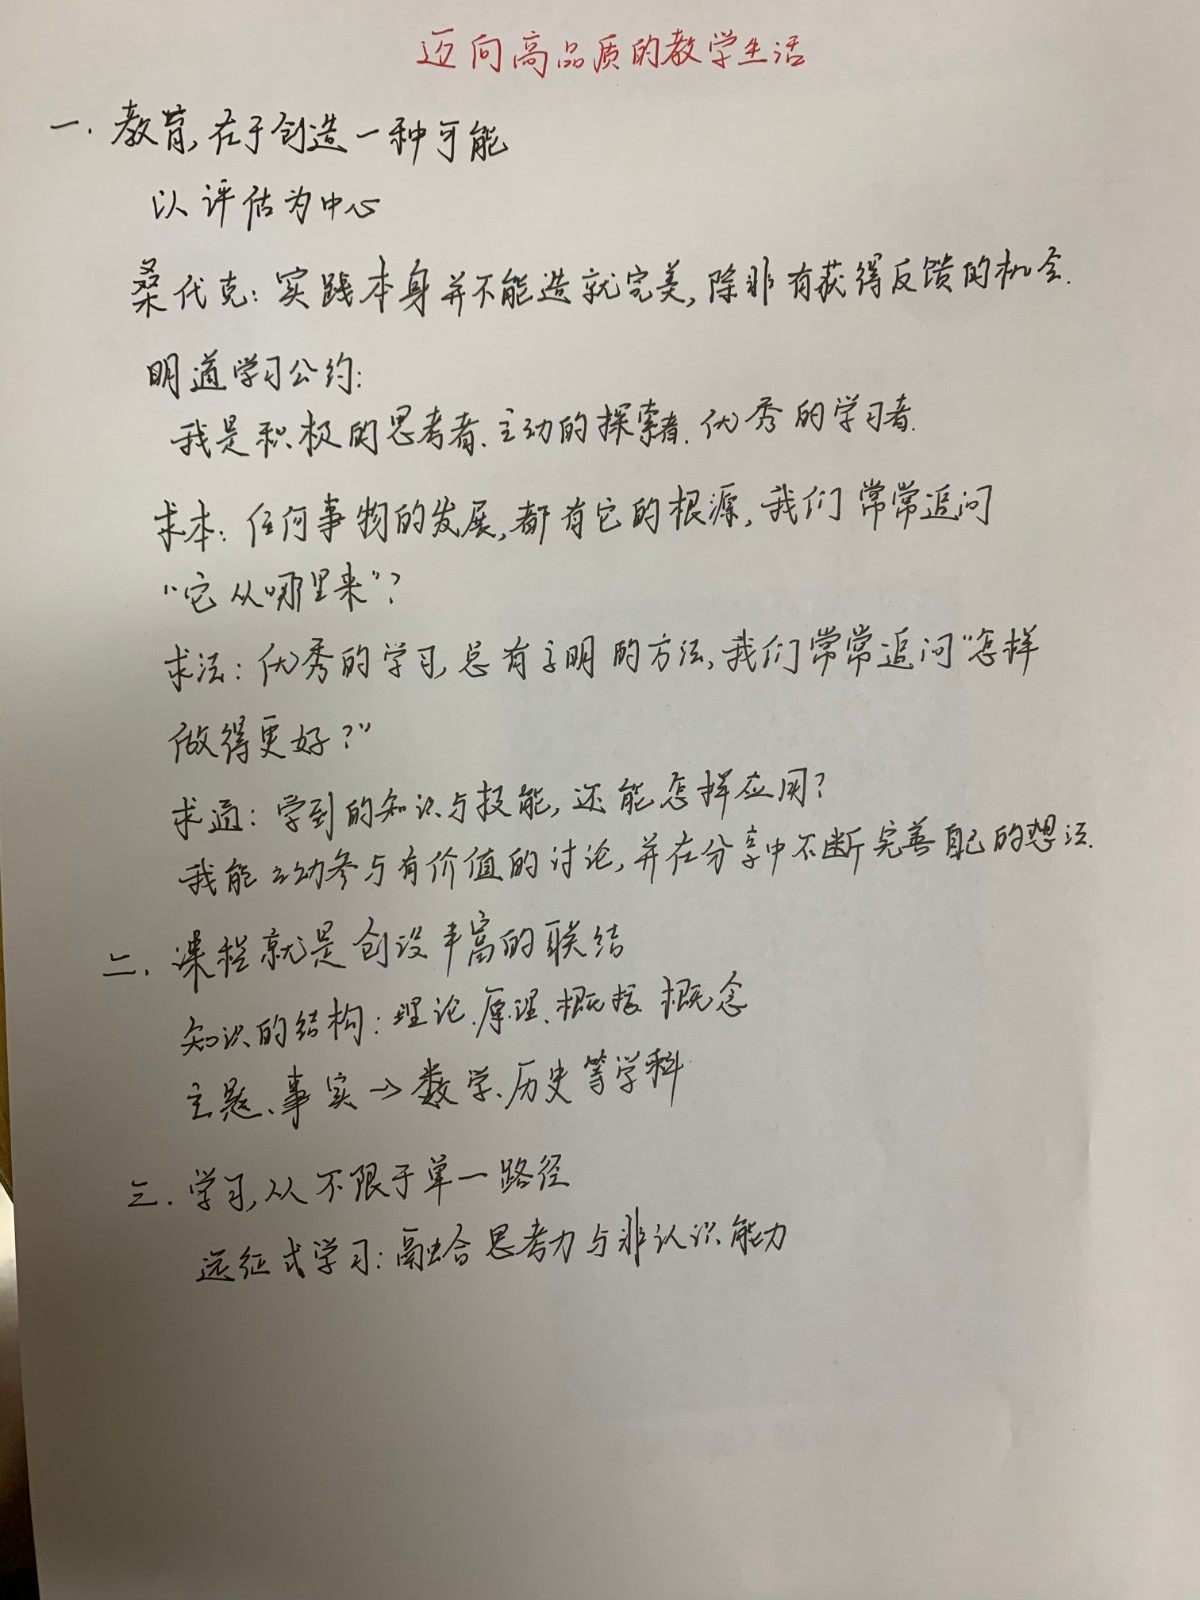 迈向高品质的教学生活
一.教育,在于创造一种可能
以评估为中心
桑代克:实践本身并不能造就完美,除非有获得反馈的机会.
明道学习公约:
我是积极的思考者、主动的探索者、优秀的学习者.
求本:任何事物的发展,都有它的根源,我们常常追问
“它从哪里来”?
求法:优秀的学习,总有高明的方法,我们常常追问“怎样
做得更好?”
求通:学到的知识与技能,还能怎样应用?
我能主动参与有价值的讨论,并在分享中不断完善自己的想法.
二.课程就是创设丰富的联结
知识的结构:理论、原理、概括、概念
主题、事实→数学、历史等学科
三.学习,从不限于单一路径
远征式学习:融合思考力与非认识能力